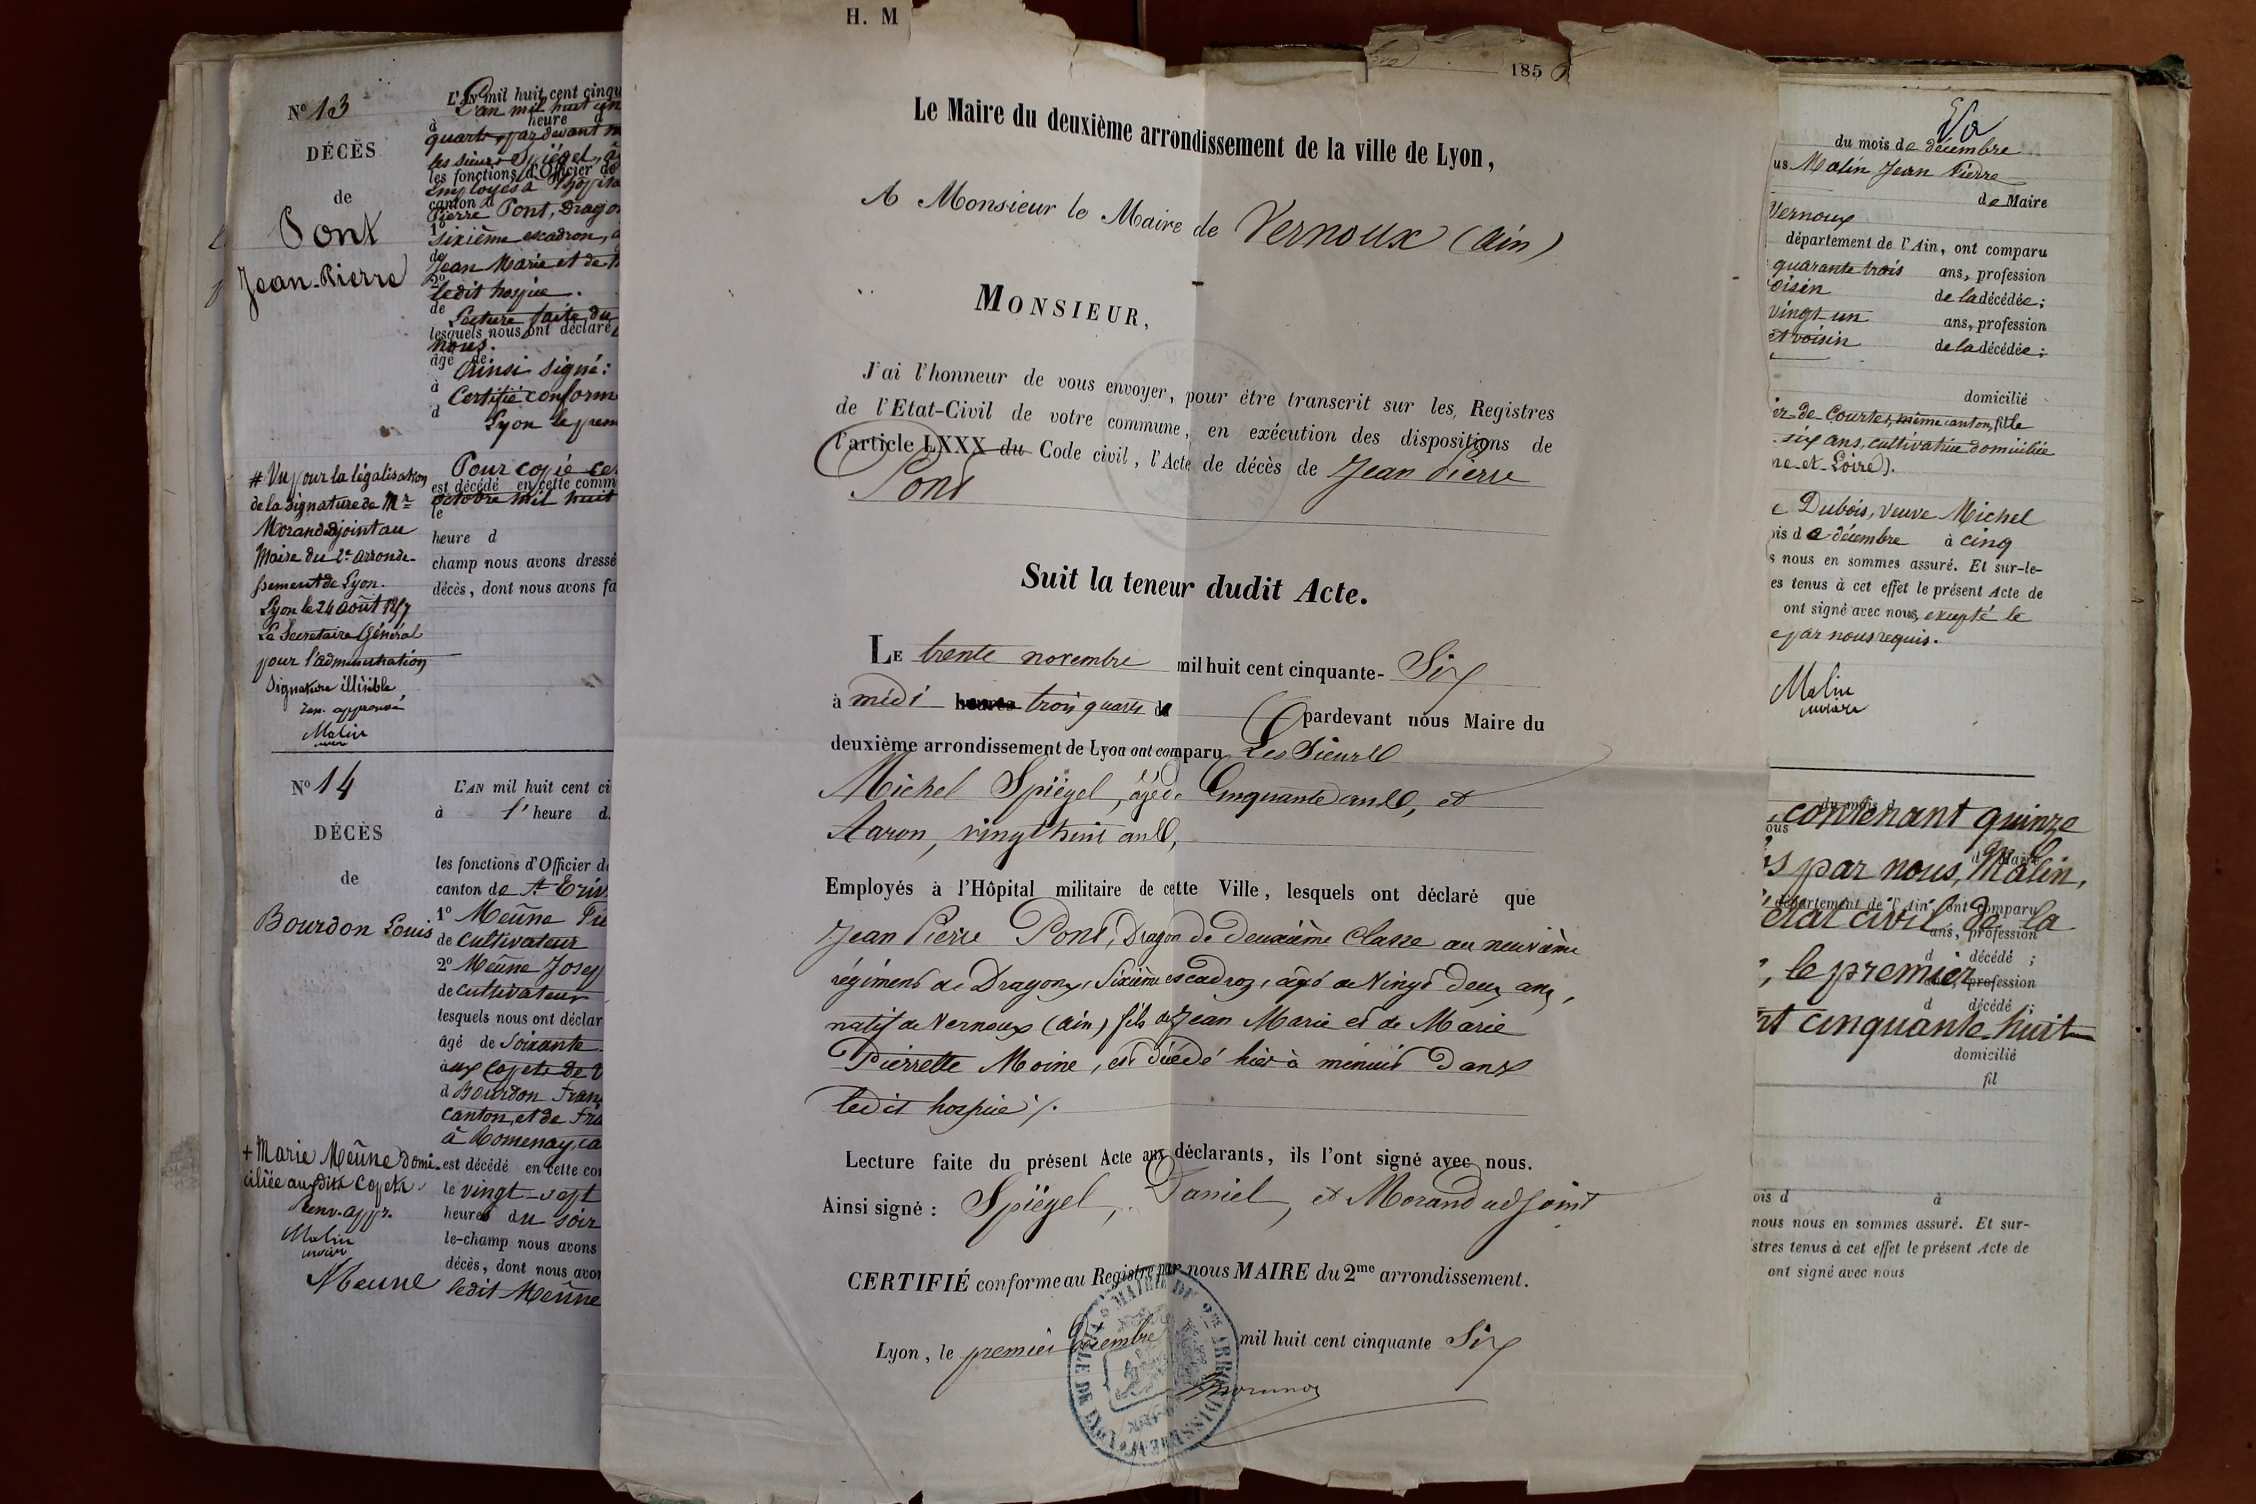 N° 13
DÉCÈS
de
Pont
Jean-Pierre
# Vu pour la légalisation
de la signature de Mr
Morand adjoint au
Maire du 2e arrondis-
sement de Lyon.
Lyon le 24 août 1857
Le Secrétaire Général
pour l'administration
Signature illisible,
ren. approuvé
Malin
L'AN mil huit cent cinqu
L'an mil huit cen
à heure d
quarts, par devant
les sieurs Spiégel, â
les fonctions d'Officier de
employés à l'hôpita
canton d
Pierre Pont, Drago
1°
sixième escadron, â
de
Jean Marie et de M
2°
ledit hospice.
de
Lecture faite du
lesquels nous ont déclaré
nous.
âgé de
Ainsi signé:
à
Certifié conforme
d
Lyon le prem
Pour copie ce
est décédé en cette comm
octobre mil huit
le
heure d
champ nous avons dressé
décès, dont nous avons fa
N° 14
DÉCÈS
de
Bourdon Louis
+ Marie Meûne domi-
ciliée auxdits Copets
Renv. appr.
Malin
Meune
L'AN mil huit cent ci
à 1' heure d
les fonctions d'Officier de
canton de St Triv
1° Meûne
de cultivateur
2° Meûne Josep
de cultivateur
lesquels nous ont déclar
âgé de soixante
aux Copets de V
d Bourdon Fran
canton, et de
à Romenay, ca
est décédé en cette co
le vingt-sept
heures du soir
le-champ nous avons
décès, dont nous avon
ledit Meûne
H. M
185 6
Le Maire du deuxième arrondissement de la ville de Lyon,
A Monsieur le Maire de Vernoux (Ain)
MONSIEUR,
J'ai l'honneur de vous envoyer, pour être transcrit sur les Registres
de l'Etat-Civil de votre commune, en exécution des dispositions de
l'article LXXX du Code civil, l'Acte de décès de Jean Pierre
Pont
Suit la teneur dudit Acte.
LE trente novembre mil huit cent cinquante- Six
à midi heures trois quarts d pardevant nous Maire du
deuxième arrondissement de Lyon ont comparu Les Sieurs
Michel Spiégel, âgé de Cinquante ans, et
Aaron, vingt huit ans,
Employés à l'Hôpital militaire de cette Ville, lesquels ont déclaré que
Jean Pierre Pont, Dragon de deuxième classe au neuvième
régiment de Dragons, Sixième escadron, âgé de Vingt deux ans,
natif de Vernoux (Ain) fils de Jean Marie et de Marie
Pierrette Moine, est décédé hier à minuit dans
ledit hospice /.
Lecture faite du présent Acte aux déclarants, ils l'ont signé avec nous.
Ainsi signé : Spiégel, Daniel, et Morand adjoint
CERTIFIÉ conforme au Registre par nous MAIRE du 2me arrondissement.
Lyon, le premier décembre mil huit cent cinquante Six
Morand
MAIRIE DU 2me ARRONDISSEMENT DE LYON
du mois de décembre
us Malin Jean Pierre
de Maire
Vernoux
département de l'Ain, ont comparu
quarante trois ans, profession
oisin de la décédée;
vingt un ans, profession
et voisin de la décédée;
domicilié
er de Courtes, même canton, fille
six ans, cultivatrice domiciliée
ne-et-Loire).
e Dubois, veuve Michel
ois de décembre à cinq
s nous en sommes assuré. Et sur-le-
es tenus à cet effet le présent Acte de
ont signé avec nous, excepté le
e par nous requis.
Malin
du mois d
contenant quinze
ous
d Maire
s par nous, Malin,
département de l'Ain, ont comparu
état civil de la
ans, profession
d décédé ;
, le premier
ans, profession
d décédé ;
nt cinquante-huit
domicilié
fil
ois d à
nous nous en sommes assuré. Et sur-
stres tenus à cet effet le présent Acte de
ont signé avec nous